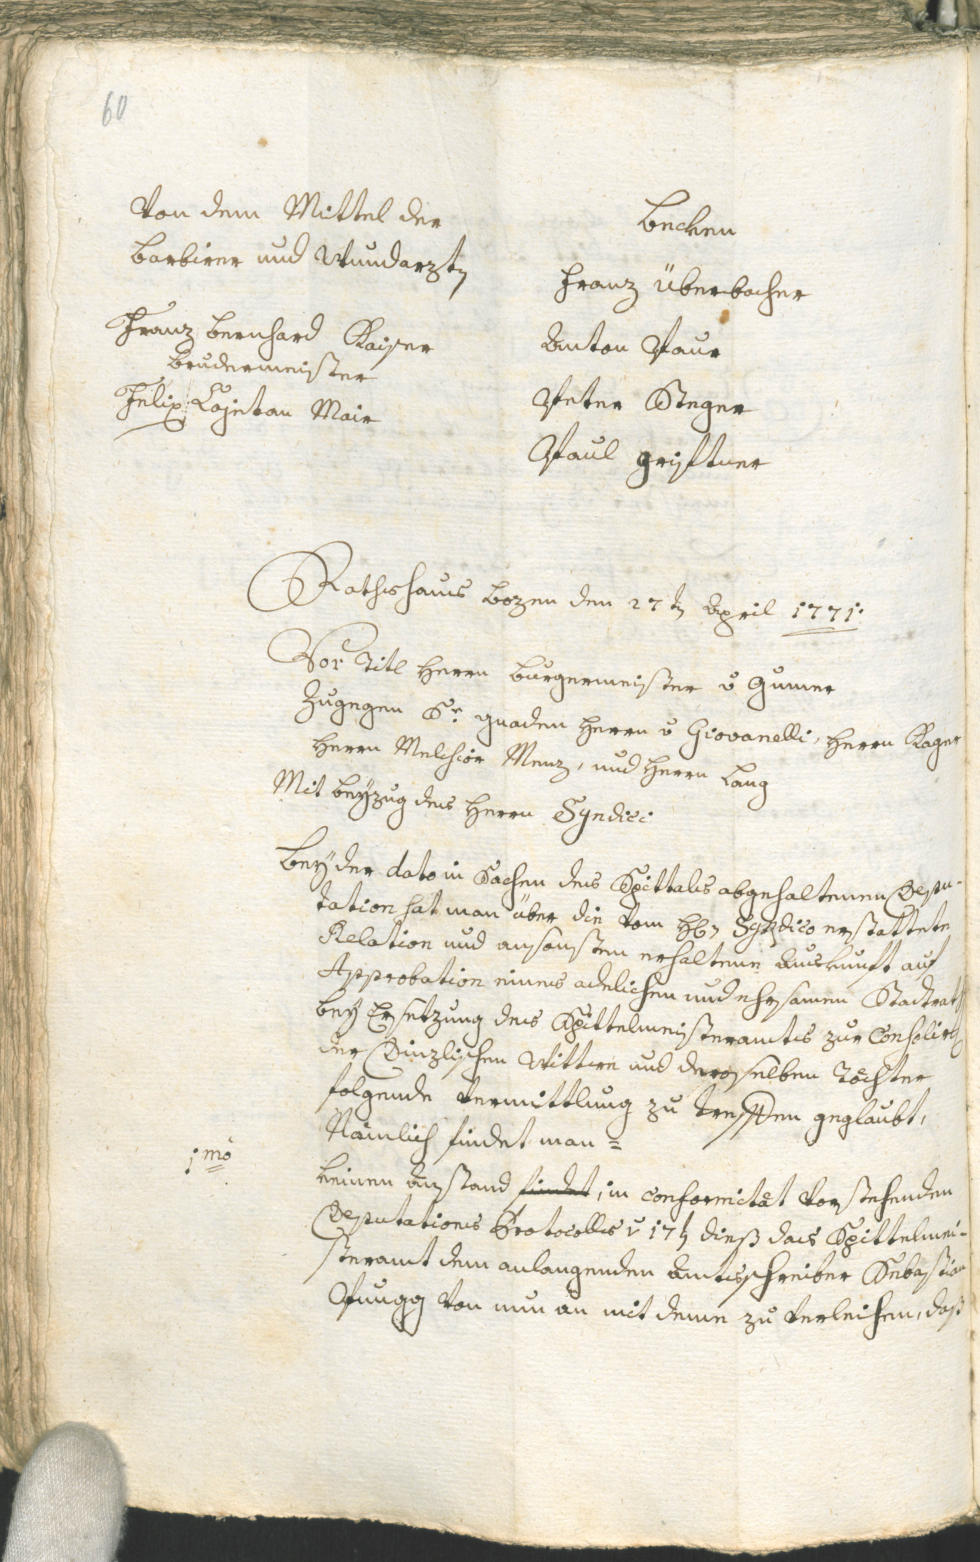 60
Von dem Mittel der
Barbirer und Wundarzt
Franz Bernhard Kaiser
Brudermeister
Felix Cajetan Mair
Becken
Franz Überbacher
Anton Paur
Peter Steger
Paul Gristner
Rathshaus Bozen den 27t April 1771.
Vor Titl Herrn Burgermeister v Gumer
Zugegen Sr gnaden Herrn v Giovanelli, Herrn Rager
Herrn Melchior Menz, und Herrn Lang
Mit beyzug des Herrn Syndici
Bey der dato in Sachen des Spittals abgehaltenen Depu-
tation hat man über die vom Hrn Syndico erstattete
Relation und ansonsten erhaltene Auskunft auf
Approbation eines adelichen und ehrsamen Stadtrath
bey Ersetzung des Spittelmeisteramts zur
der Dinzlischen Wittwe und derselben Töchter
folgende Vermittlung zu treffen geglaubt,
Nämlich findet man =
1mo
keinen Anstand findet, in conformitet vorstehenden
Deputations Protocolls v 17t dieß das Spittelmei-
steramt dem anlangenden Amtsschreiber Sebastian
von nun an mit deme zu verleihen, daß